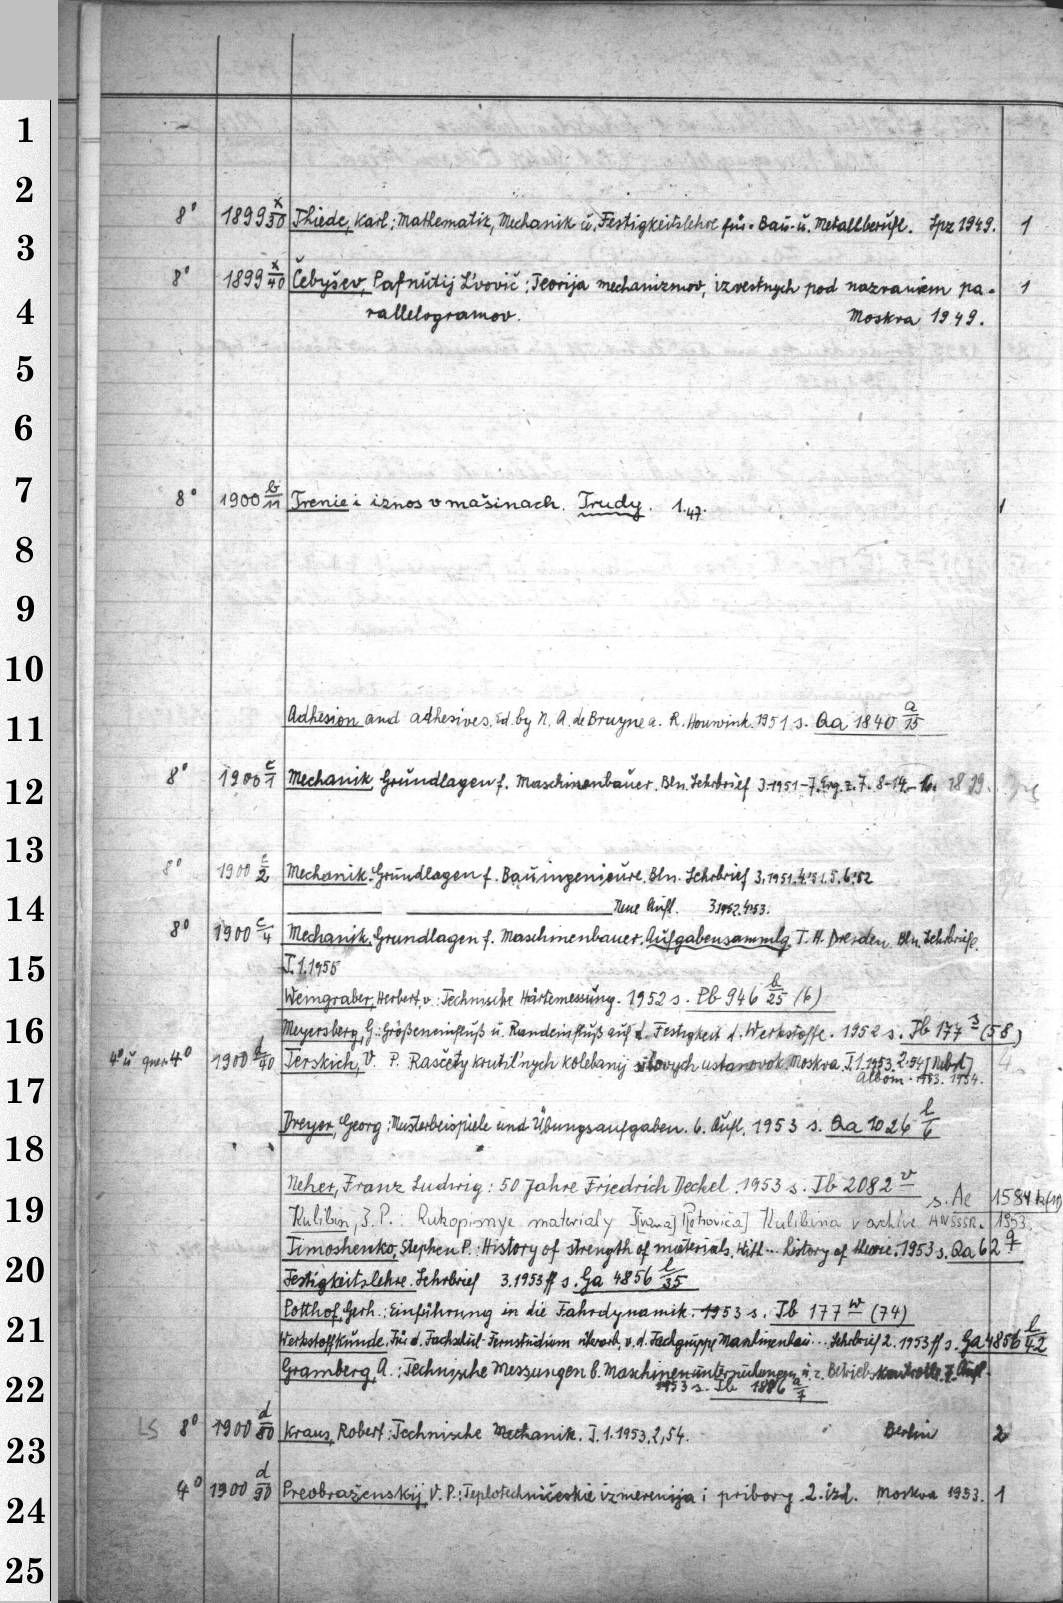 1
2
8° 1899 x/30 Thiede, Karl: Mathematik, Mechanik u. Festigkeitslehre für Bau- u. Metallberufl. Lpz 1949. 1
3
8° 1899 x/40 Čebyšev, Pafnutij L'vovič: Teorija mechanizmov, izvestnych pod nazvaniem pa- 1
4 rallelogramov. Moskva 1949.
5
6
7
8° 1900 b/11 Trenie i iznos v mašinach. Trudy. 1.47. 1
8
9
10
11 Adhesion and adhesives. Ed. by N. A. de Bruyne a. R. Houwink. 1951 s. Qa 1840 a/15
12 8° 1900 c/1 Mechanik, Grundlagen f. Maschinenbauer. Bln. Lehrbrief 3.1951-7. Erg. z. 7. 8-14- 16.
13
8° 1900 c/2 Mechanik. Grundlagen f. Bauingenieure. Bln. Lehrbrief 3.1951.4.'51.5.6.'52
14 Neue Aufl. 3.1952.4.'53.
8° 1900 c/4 Mechanik. Grundlagen f. Maschinenbauer. Aufgabensammlg. T. H. Dresden. Bln. Lehrbriefe.
15 T. 1.1955
Weingraber, Herbert v.: Technische Härtemessung. 1952 s. Pb 946 b/25 (6)
16 Meyersberg, G.: Größeneinfluß u. Randeinfluß auf d. Festigkeit d. Werkstoffe. 1952 s. Ib 177 s (58)
4° u. quer 4° 1900 d/40 Terskich, V. P. Rasčety krutil'nych kolebanij silovych ustanovok. Moskva. T. 1.1953. 2.54 [Nebst]
17 Al'bom. 1953. 1954.
Dreyer, Georg: Musterbeispiele und Übungsaufgaben. 6. Aufl. 1953 s. Qa 1026 l/6
18
Neher, Franz Ludwig: 50 Jahre Friedrich Deckel. 1953 s. Ib 2082 v
19 s. Ae 1584
Kulibin, I. P.: Rukopisnye materialy I[vana] P[etrovica] Kulibina v archive AN SSSR. 1953.
Timoshenko, Stephen P.: History of strength of materials. With... history of theorie. 1953 s. Qa 62 q/7
20 Festigkeitslehre. Lehrbrief 3.1953 ff s. Ga 4856 l/35
Potthof, Gerh.: Einführung in die Fahrdynamik. 1953 s. Ib 177 w (74)
21 Werkstoffkunde. Für d. Fachschul-Fernstudium v. d. Fachgruppe Maschinenbau... Lehrbrief 2. 1953 ff s. Ga 4856 l/42
Gramberg, A.: Technische Messungen b. Maschinenuntersuchungen u. z. Betriebskontrolle. 7. Aufl.
22 1953 s. Ib 1886 a/7
LS 8° 1900 d/80 Kraus, Robert: Technische Mechanik. T. 1.1953. 2,54. Berlin 2
23
4° 1900 d/90 Preobraženskij, V. P.: Teplotechničeskie izmerenija i pribory. 2. izd. Moskva 1953. 1
24
25